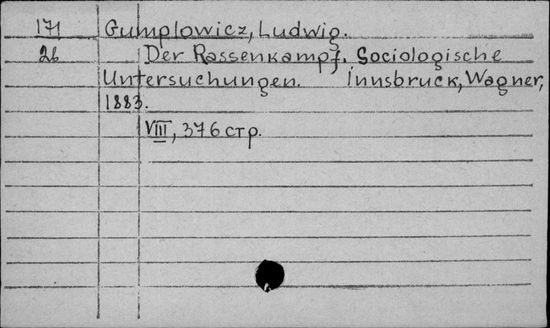 171 Gumplowicz, Ludwig.
26 Der Rassenkampf. Sociologische
Untersuchungen. Innsbruck, Wagner,
1883.
VIII, 376 стр.